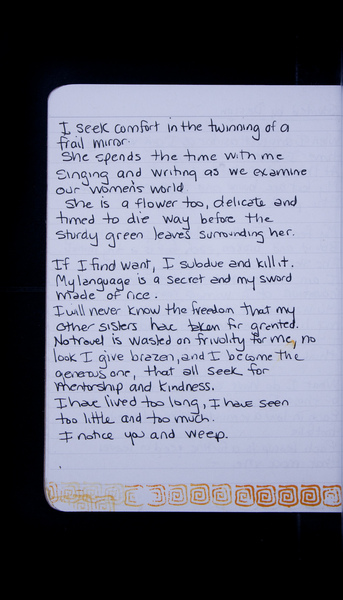 I seek comfort in the twinning of a
frail mirror.
She spends the time with me
singing and writing as we examine
our women's world
She is a flower too, delicate and
timed to die way before the
sturdy green leaves surrounding her.
If I find want, I subdue and kill it.
My language is a secret and my sword
made of rice.
I will never know the freedom that my
other sisters have taken for granted.
No travel is wasted on frivolity for me, no
look I give brazen, and I become the
generous one, that all seek for
mentorship and kindness.
I have lived too long, I have seen
too little and too much.
I notice you and weep.